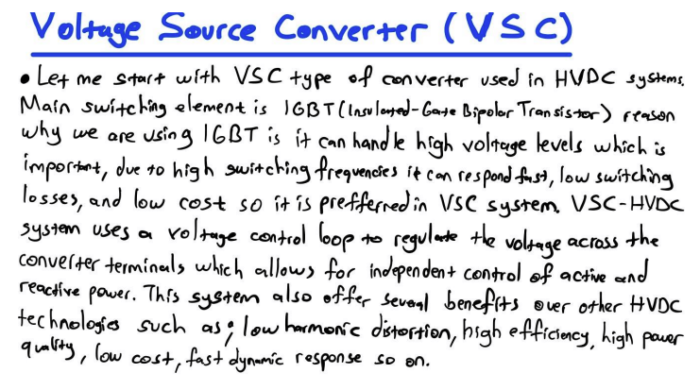 Voltage Source Converter (VSC)
• Let me start with VSC type of converter used in HVDC systems.
Main switching element is IGBT (Insulated-Gate Bipolar Transistor) reason
why we are using IGBT is it can handle high voltage levels which is
important, due to high switching frequencies it can respond fast, low switching
losses, and low cost so it is prefferred in VSC system. VSC-HVDC
system uses a voltage control loop to regulate the voltage across the
converter terminals which allows for independent control of active and
reactive power. This system also offer several benefits over other HVDC
technologies such as; low harmonic distortion, high efficiency, high power
quality, low cost, fast dynamic response so on.